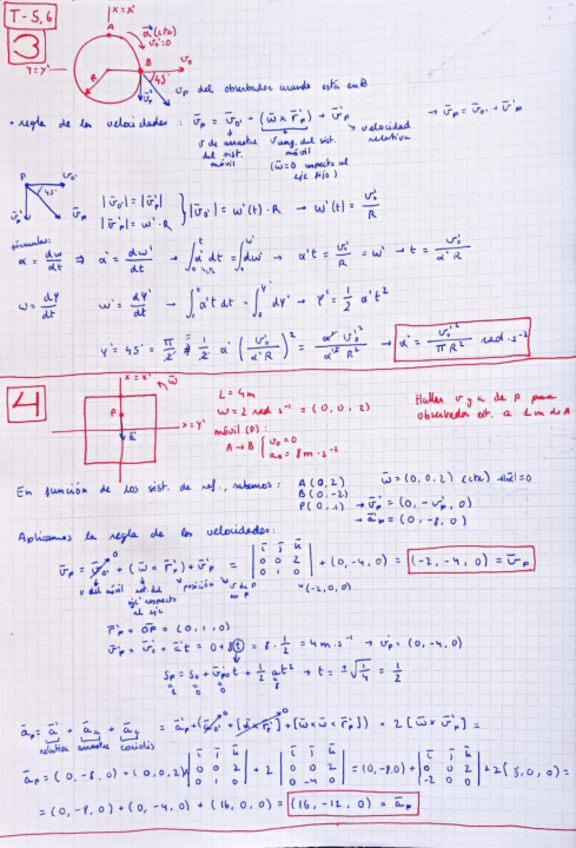 T-5,6
3
x = x'
A
α'(cte)
v₀' = 0
B
v₀'
y = y'
R
45°
v̄'p
v̄p del observador cuando está en B
• regla de las velocidades: v̄p = v̄₀' + (ω̄ × r̄'p) + v̄'p → v̄p = v̄₀' + v̄'p
v de arrastre del sist. móvil
v ang. del sist. móvil
(ω̄ = 0 respecto al eje fijo)
velocidad relativa
P
v̄₀'
45°
v̄'p
v̄p
|v̄₀'| = |v̄'p|
|v̄'p| = ω'·R
} |v̄₀'| = ω'(t)·R → ω'(t) = v₀'/R
fórmulas:
α = dω/dt ⇒ α' = dω'/dt → ∫α' dt = ∫dω' → α't = v₀'/R = ω' → t = v₀'/α'R
ω = dφ/dt ω' = dφ'/dt → ∫α't dt = ∫dφ' → φ' = 1/2 α't²
φ' = 45° = π/2 1/2 α' (v₀'/α'R)² = α' v₀'²/α'² R² → α' = v₀'²/πR² rad·s⁻²
4
x = x'
ω̄
P
ā'
= y'
L = 4m
ω = 2 rad s⁻¹ = (0, 0, 2)
móvil (P):
A → B { v₀ = 0
a₀ = 8 m·s⁻²
Hallar v y a de P para
observador est. a 1m de A
En función de los sist. de ref., sabemos:
A(0, 2)
B(0, -2)
P(0, 1)
ω̄ = (0, 0, 2) (cte) → |ᾱ| = 0
→ v̄'p = (0, -v'p, 0)
→ ā'p = (0, -8, 0)
Aplicamos la regla de las velocidades:
v̄p = v̄₀' + (ω̄ × r̄'p) + v̄'p = | i j k | 0 0 2 | 0 1 0 | + (0, -4, 0) = (-2, -4, 0) = v̄p
0
v del móvil
rot. del eje respecto al eje
posición
v de P
(-2, 0, 0)
r̄'p = OP = (0, 1, 0)
v̄'p = v̄₀' + ā't = 0 + 8t = 8·1/2 = 4 m·s⁻¹ → v'p = (0, -4, 0)
Sp = S₀ + v'p₀t + 1/2 at² → t = ±√1/4 = 1/2
āp = ā' + āa + āc = ā'p + (ā₀' + [ᾱ × r̄'p] + [ω̄ × ω̄ × r̄'p]) + 2[ω̄ × v̄'p] =
relativa arrastre coriolis
āp = (0, -8, 0) + (0, 0, 2) × | i j k | 0 0 2 | 0 1 0 | + 2 | i j k | 0 0 2 | 0 -4 0 | = (0, -8, 0) + | i j k | 0 0 2 | -2 0 0 | + 2(8, 0, 0) =
= (0, -8, 0) + (0, -4, 0) + (16, 0, 0) = (16, -12, 0) = āp